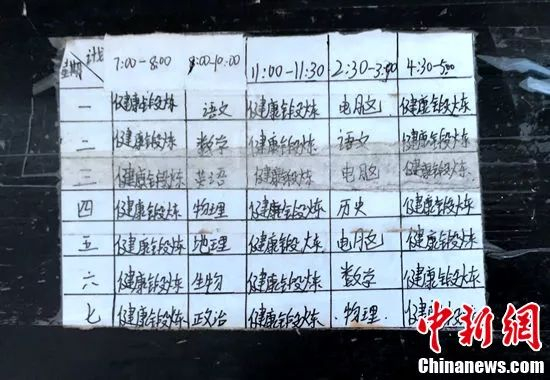 计划
星期 7:00-8:00 8:00-10:00 11:00-11:30 2:30-3:30 4:30-5:00
一 健康锻炼 语文 健康锻炼 电脑 健康锻炼
二 健康锻炼 数学 健康锻炼 语文 健康锻炼
三 健康锻炼 英语 健康锻炼 电脑 健康锻炼
四 健康锻炼 物理 健康锻炼 历史 健康锻炼
五 健康锻炼 地理 健康锻炼 电脑 健康锻炼
六 健康锻炼 生物 健康锻炼 数学 健康锻炼
七 健康锻炼 政治 健康锻炼 物理 健康锻炼
中新网
Chinanews.com